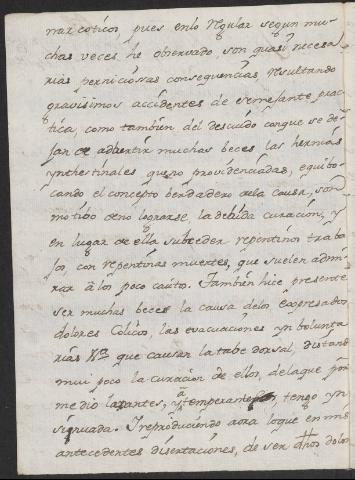 narcoticos, pues enlo Regular segun mu-
chas veces he observado, son quasi necesa-
rias perniciossas consequencias, resultando
gravisimos accidentes de semejante prac-
tica, como tambien del descuido conque se de-
jan de adbertir muchas beces las hernias
ynthestinales que no providenciadas, equibo-
cando el concepto berdadero dela causa, son
motibo deno lograrse, la debida curacion, y
en lugar de ella subceder repentinos traba-
jos, con repentinas muertes, que suelen admi-
rar â los poco cautos. Tambien hice presente
ser muchas beces la causa delos expresados
dolores Colicos, las evacuaciones ynbolunta-
rias que causan la tabe dorsal, distando
mui poco la curacion de ellos, delaque por
medio laxantes, y atemperantes, tengo yn-
sinuada. Y reproduciendo aora loque en mis
antecedentes disertaciones, de ser dhos dolo-